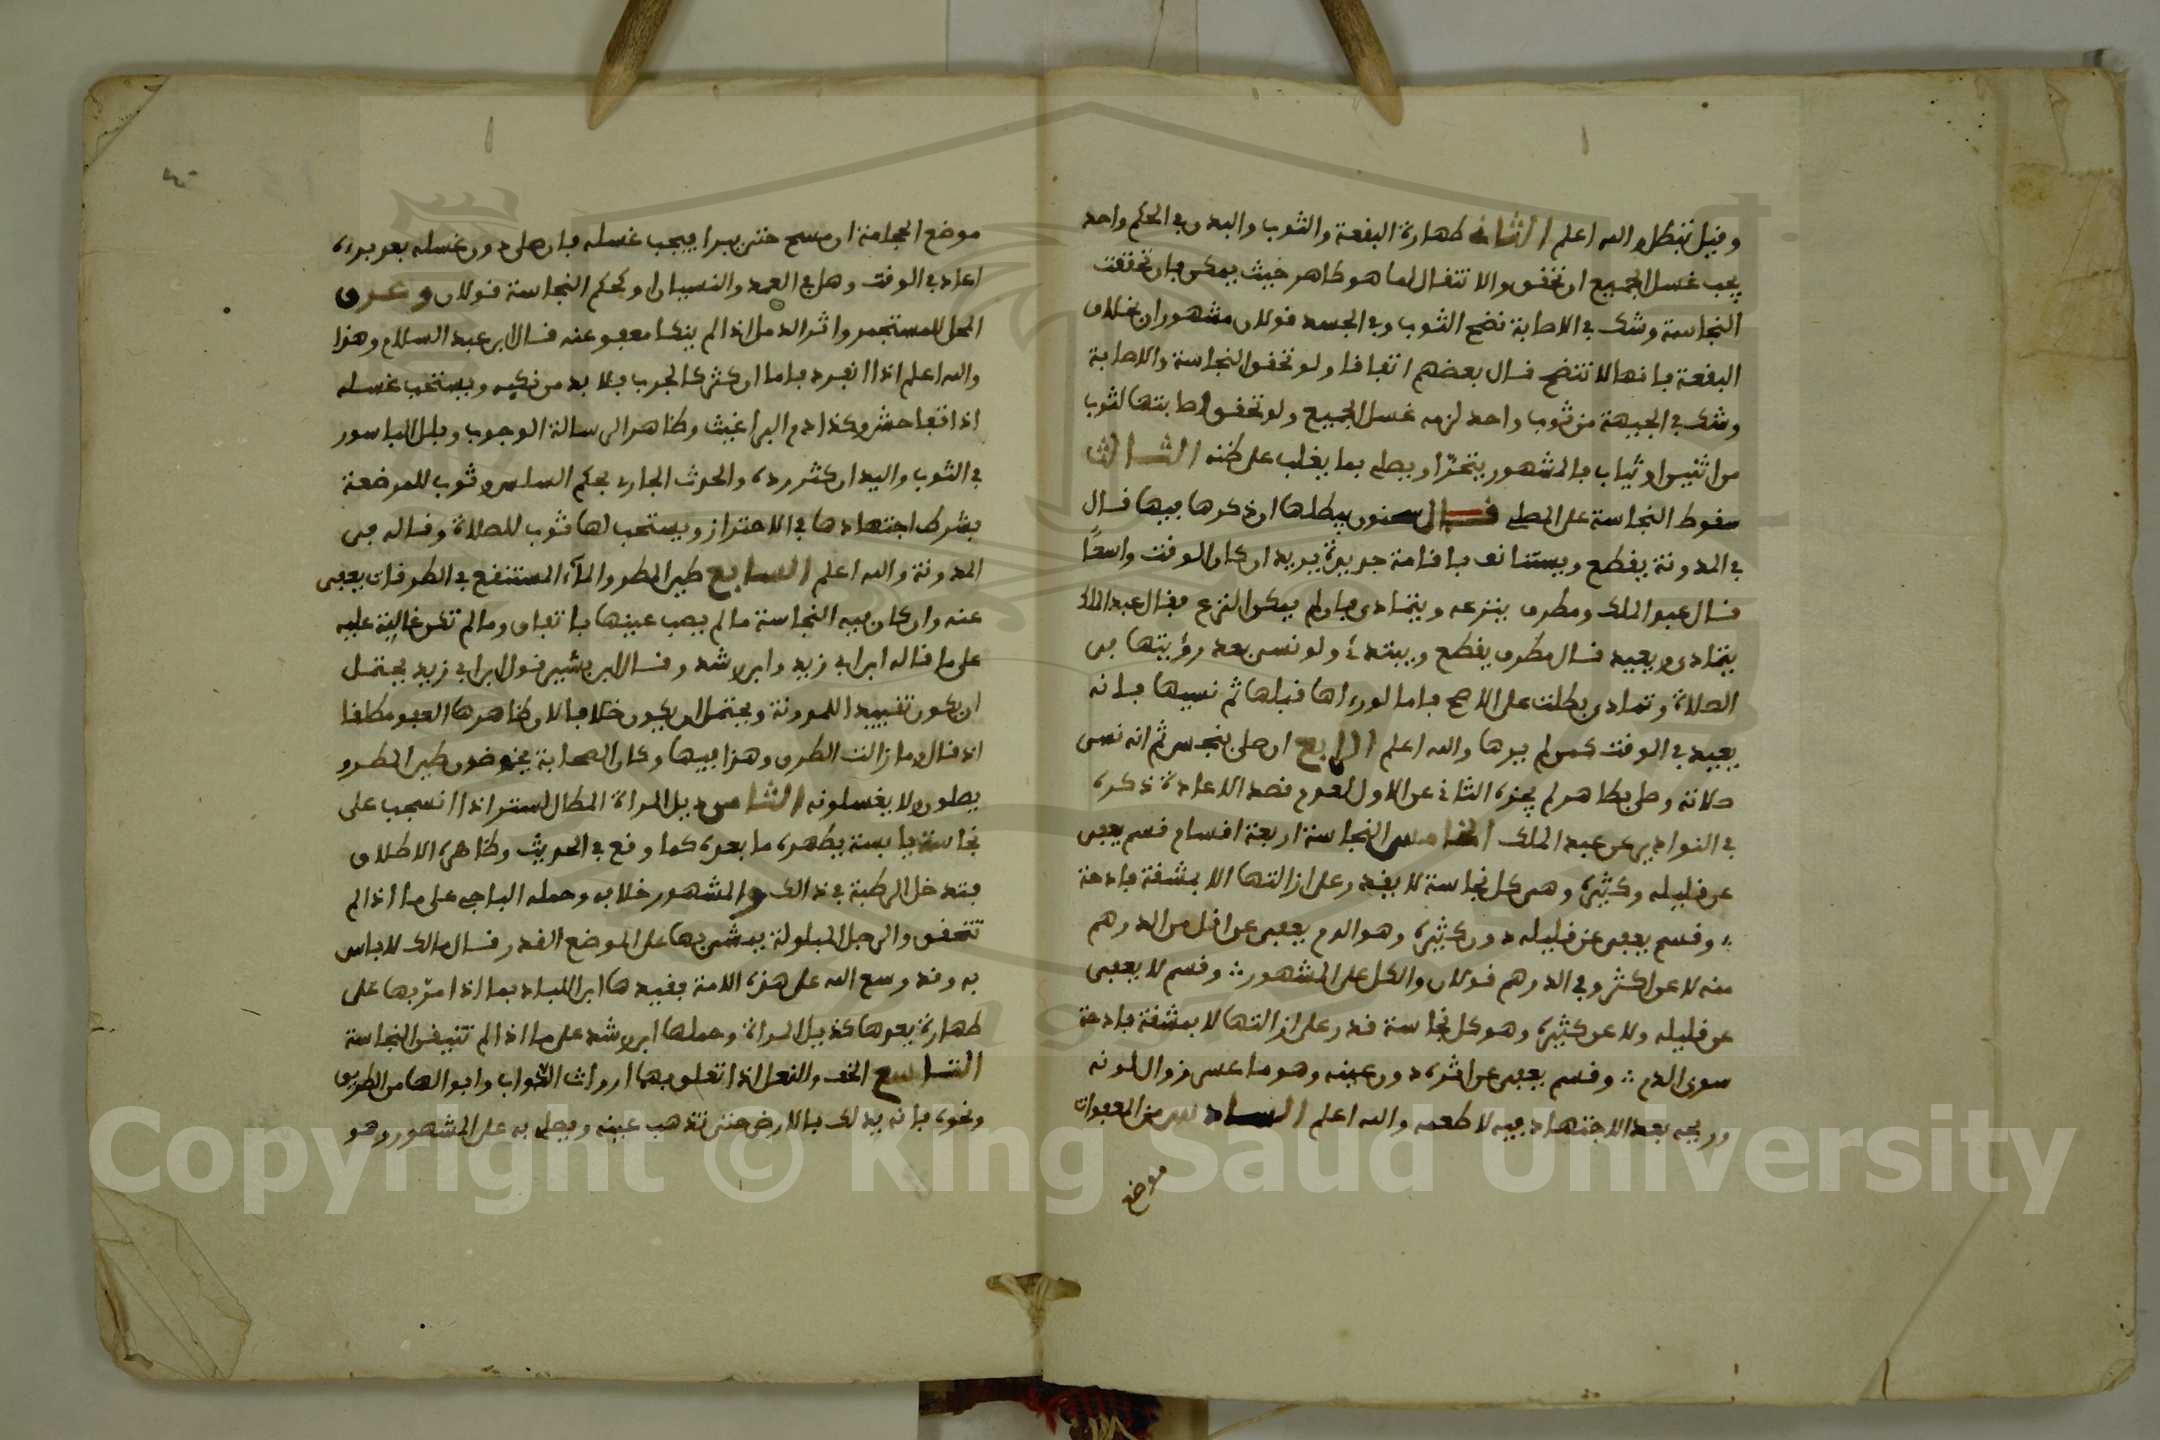 وقيل تبطل والله اعلم الثاني طهارة البقعة والثوب والبدن في الحكم واحد
يجب غسل الجميع ان تحقق والانتقال لما هو طاهر حيث يمكن فان تحققت
النجاسة وشك في الاصابة نضح الثوب وفي الجسد قولان مشهوران بخلاف
البقعة فانها لا تنضح قال بعضهم اتفاقا ولو تحقق النجاسة والاصابة
وشك في الجهة من ثوب واحد لزمه غسل الجميع ولو تحقق اصابتها لثوب
من اثنين او ثياب فالمشهور يتحرا ويصلي بما يغلب على ظنه الثالث
سقوط النجاسة على المصلي قال سحنون يبطلها او ذكرها فيها قال
في المدونة يقطع ويستانف باقامة جديدة يريد ان كان الوقت واسعا
قال عبد الملك ومطرف ينزعه ويتمادى فان لم يمكن النزع فقال عبد الملك
يتمادى ويعيد قال مطرف يقطع ويبتدئ ولو نسي بعد رؤيتها في
الصلاة وتمادى بطلت على الاصح فاما لو رءاها قبلها ثم نسيها فانه
يعيد في الوقت كمن لم يرها والله اعلم الرابع ان صلى بنجس ثم انه نسى
صلاته وصلى بطاهر لم يجزه الثاني عن الاول لعدم قصد الاعادة ذكره
في النوادر عن عبد الملك الخامس النجاسة اربعة اقسام قسم يعفى
عن قليله وكثيره وهى كل نجاسة لا يقدر على ازالتها الا بمشقة فادحة
وقسم يعفى عن قليله دون كثيره وهو الدم يعفى عن اقل من الدرهم
منه لا عن اكثر وفي الدرهم قولان والكل على المشهور وقسم لا يعفى
عن قليله ولا عن كثيره وهو كل نجاسة قدر على ازالتها لا بمشقة فادحة
سوى الدم وقسم يعفى عن اثره دون عينه وهو ما عسر زوال لونه
وريحه بعد الاجتهاد فيه لا طعمه والله اعلم السادس من المعفوات
موضع
موضع الحجامة ان مسح حتى يبرا فيجب غسله فان صلى دون غسله بعد برءه
اعاد في الوقت وهل في العمد والنسيان او كحكم النجاسة قولان وعرق
المحل للمستجمر واثر الدمل اذا لم ينكا معفو عنه قال ابن عبد السلام وهذا
والله اعلم اذا انفرد فاما ان كثر كالجرب فلا بد من نكيه ويستحب غسله
اذا تفاحش وكذا دم البراغيث وظاهر الرسالة الوجوب وبلل الباسور
في الثوب واليد ان كثر رده والحدث الجاري بحكم السلس وثوب للمرضعة
بشرط اجتهادها في الاحتراز ويستحب لها ثوب للصلاة وقاله في
المدونة والله اعلم السابع طين المطر والماء المستنقع في الطرقات يعفى
عنه وان كان فيه النجاسة ما لم يصب عينها باتفاق وما لم تكن غالبة عليه
على ما قاله ابن ابي زيد وابن رشد وقال ابن بشير قول ابن ابي زيد يحتمل
ان يكون تقييدا للمدونة ويحتمل ان يكون خلافا لان ظاهرها العفو مطلقا
اذ قال وما زالت الطرق وهذا فيها وكان الصحابة يخوضون طين المطر و
يصلون ولا يغسلونه الثامن ذيل المراة المطال للستر اذا انسحب على
نجاسة يابسة يطهره ما بعده كما وقع في الحديث وظاهره الاطلاق
فتدخل الرطبة في ذالك والمشهور خلافه وحمله الباجي على ما اذا لم
تتحقق والرجل المبلولة يمشي بها على الموضع القذر قال مالك لا باس
به وقد وسع الله على هذه الامة فقيدها ابن اللباد بما اذا مر بها على
طهارة بعدها كذيل المراة وحملها ابن رشد على ما اذا لم تتيقن النجاسة
التاسع الخف والنعل اذا تعلق بهما ارواث الدواب وابوالها من الطريق
ونحوه فانه يدلك بالارض حتى تذهب عينه ويصلي به على المشهور وهو
Copyright © King Saud University